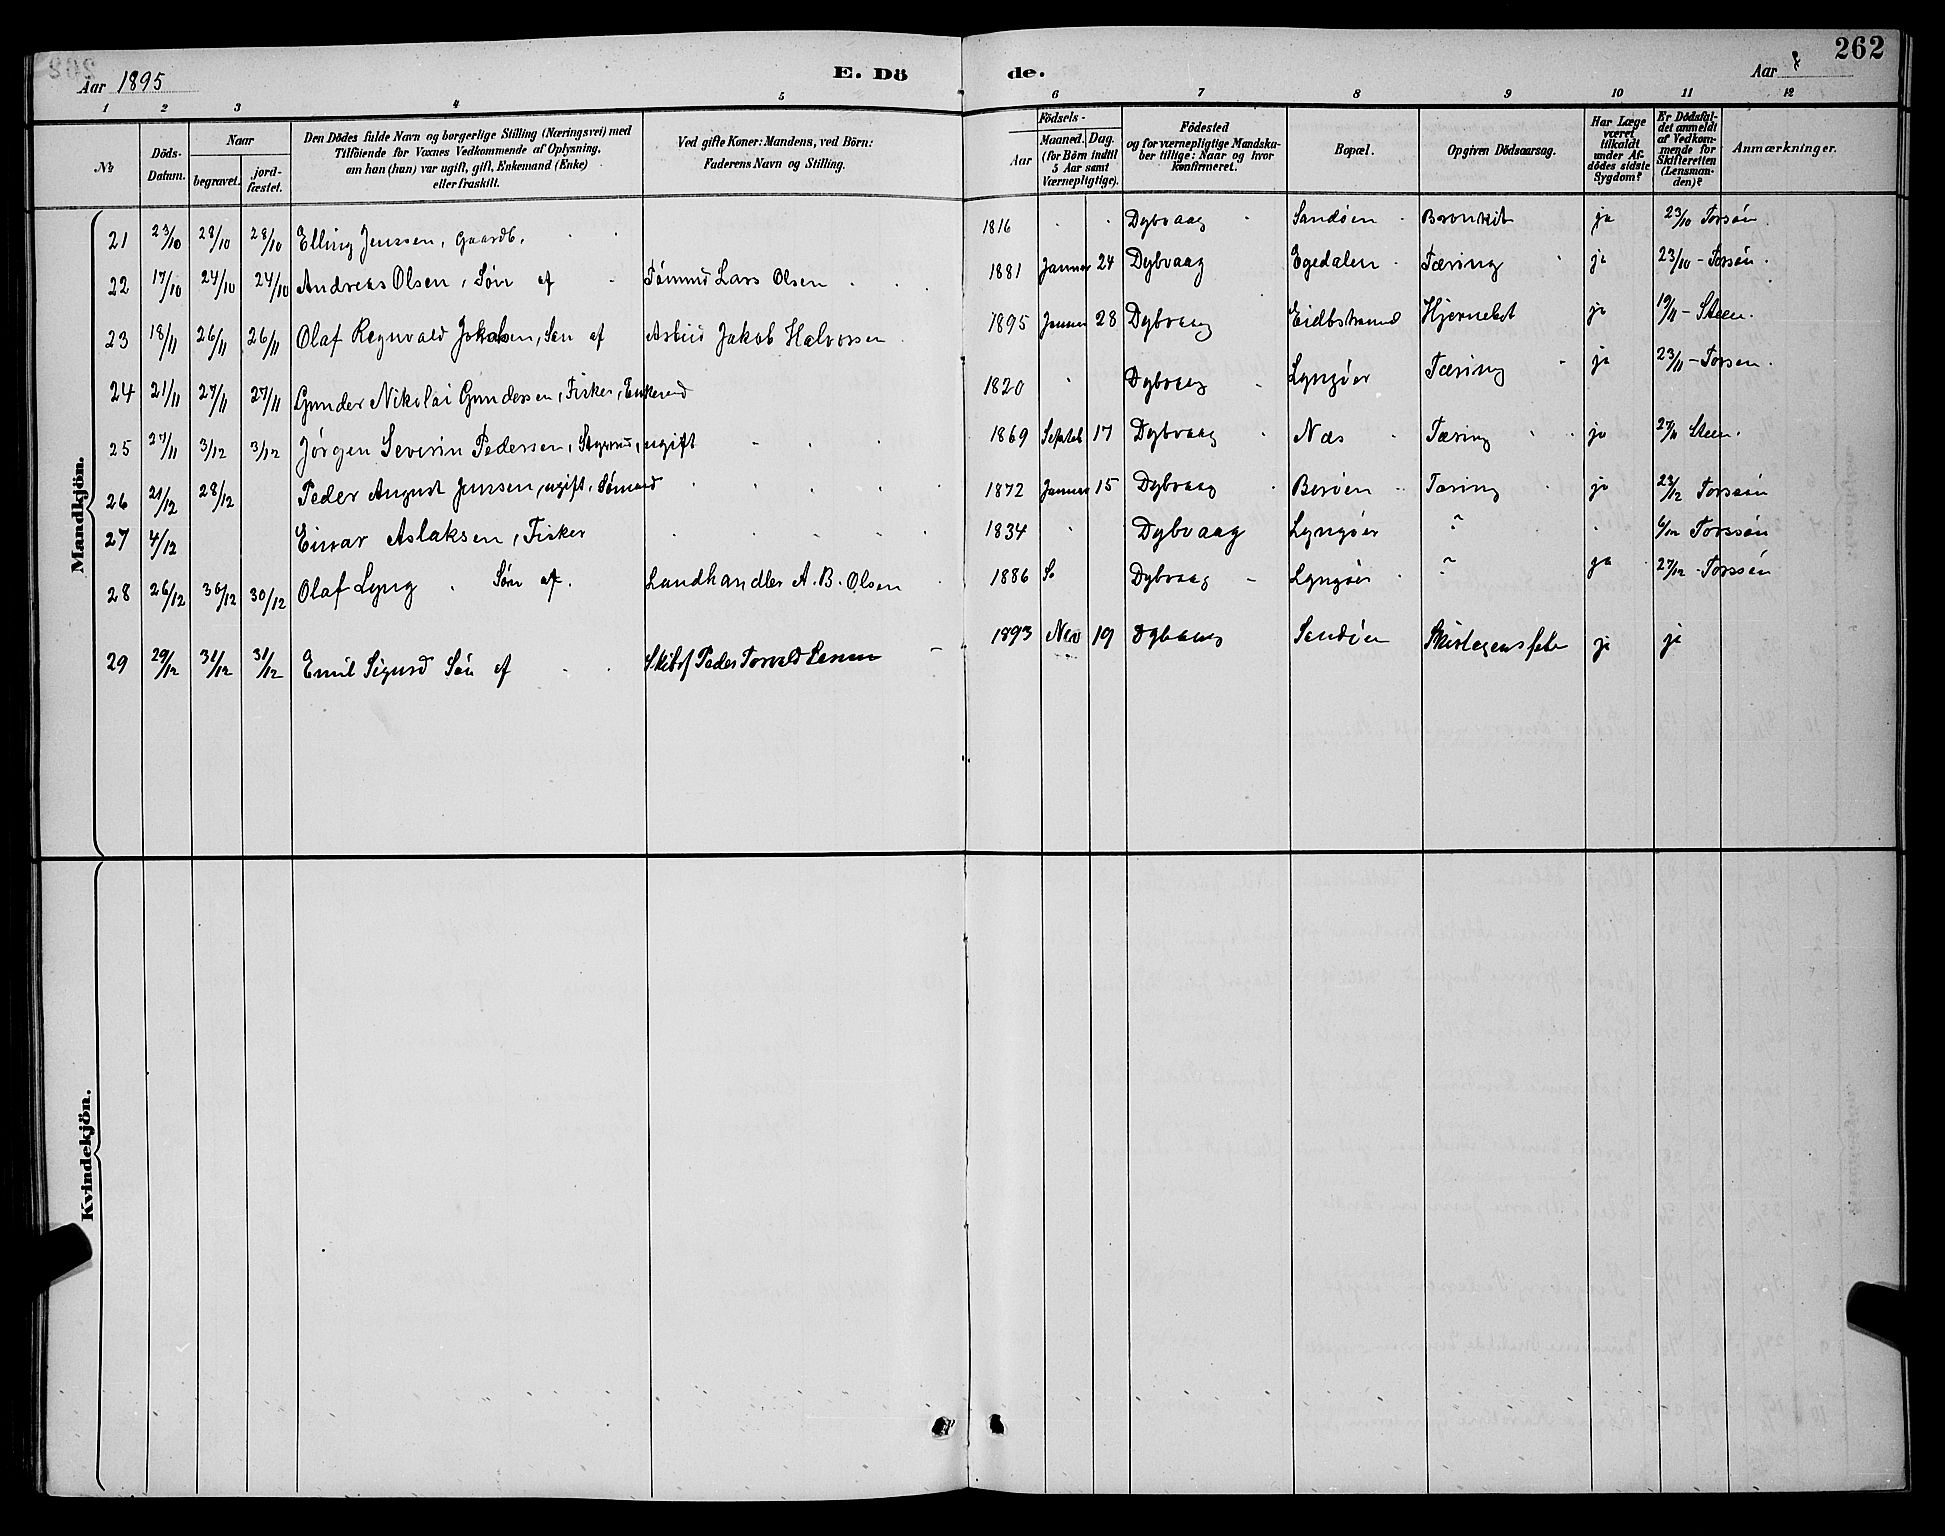 262
Aar 1895 E. Dö de. Aar
1 2 3 4 5 6 7 8 9 10 11 12
№ Döds-Datum. Naar begravet. jord-fæstet. Den Dödes fulde Navn og borgerlige Stilling (Næringsvei) med Tilföiende for Voxnes Vedkommende af Oplysning, om han (hun) var ugift, gift, Enkemand (Enke) eller fraskilt. Ved gifte Koner: Mandens, ved Börn: Faderens Navn og Stilling. Födsels- Aar Maaned. Dag. (for Börn indtil 5 Aar samt Værnepligtige). Födested og for værnepligtige Mandskaber tillige: Naar og hvor konfirmeret. Bopæl. Opgiven Dödsaarsag. Har Læge været tilkaldt under Afdödes sidste Sygdom? Er Dödsfaldet anmeldt af Vedkommende for Skifteretten (Lensmanden)? Anmærkninger.
Mandkjön.
21 23/10 28/10 28/10 Elling Jenssen, Gaardb. 1816 Dybvaag Sandøen Bronkit ja 23/10 Torsøn
22 17/10 24/10 24/10 Andreas Olsen, Søn af Tømmd Lars Olsen 1881 Januar 24 Dybvaag Egedalen Tæring ja 23/10 - Torsøn.
23 18/11 26/11 26/11 Olaf Regnvald Jakobsen, Søn af Jakob Halvorsen 1895 Januar 28 Dybvaag Eidbstrand ja 19/11 - Steen.
24 21/11 27/11 27/11 Gunder Nikolai Gundersen, Fisker, Enkemd 1820 Dybvaag Lyngøer Tæring ja 23/11 - Torsøn.
25 27/11 3/12 3/12 Jørgen Severin Pedersen, ugift 1869 Septeb 17 Dybvaag Næs Tæring ja 27/11 Steen.
26 21/12 28/12 Peder August Jensen, ugift, Sømand 1872 Januar 15 Dybvaag Borøen Tæring ja 23/12 Torssøn
27 4/12 Einar Aslaksen, Fisker 1834 Dybvaag Lyngøer ? 6/12 Torssøn
28 26/12 30/12 30/12 Olaf Lyng Søn af Landhandler A. B. Olsen 1886 Dybvaag Lyngøer ? ja 27/12 - Torssøn
29 29/12 31/12 31/12 Emil Sigurd Søn af Peder Torvald 1893 Nov 19 Dybvaag Sandøen ja ja
Kvindekjön.